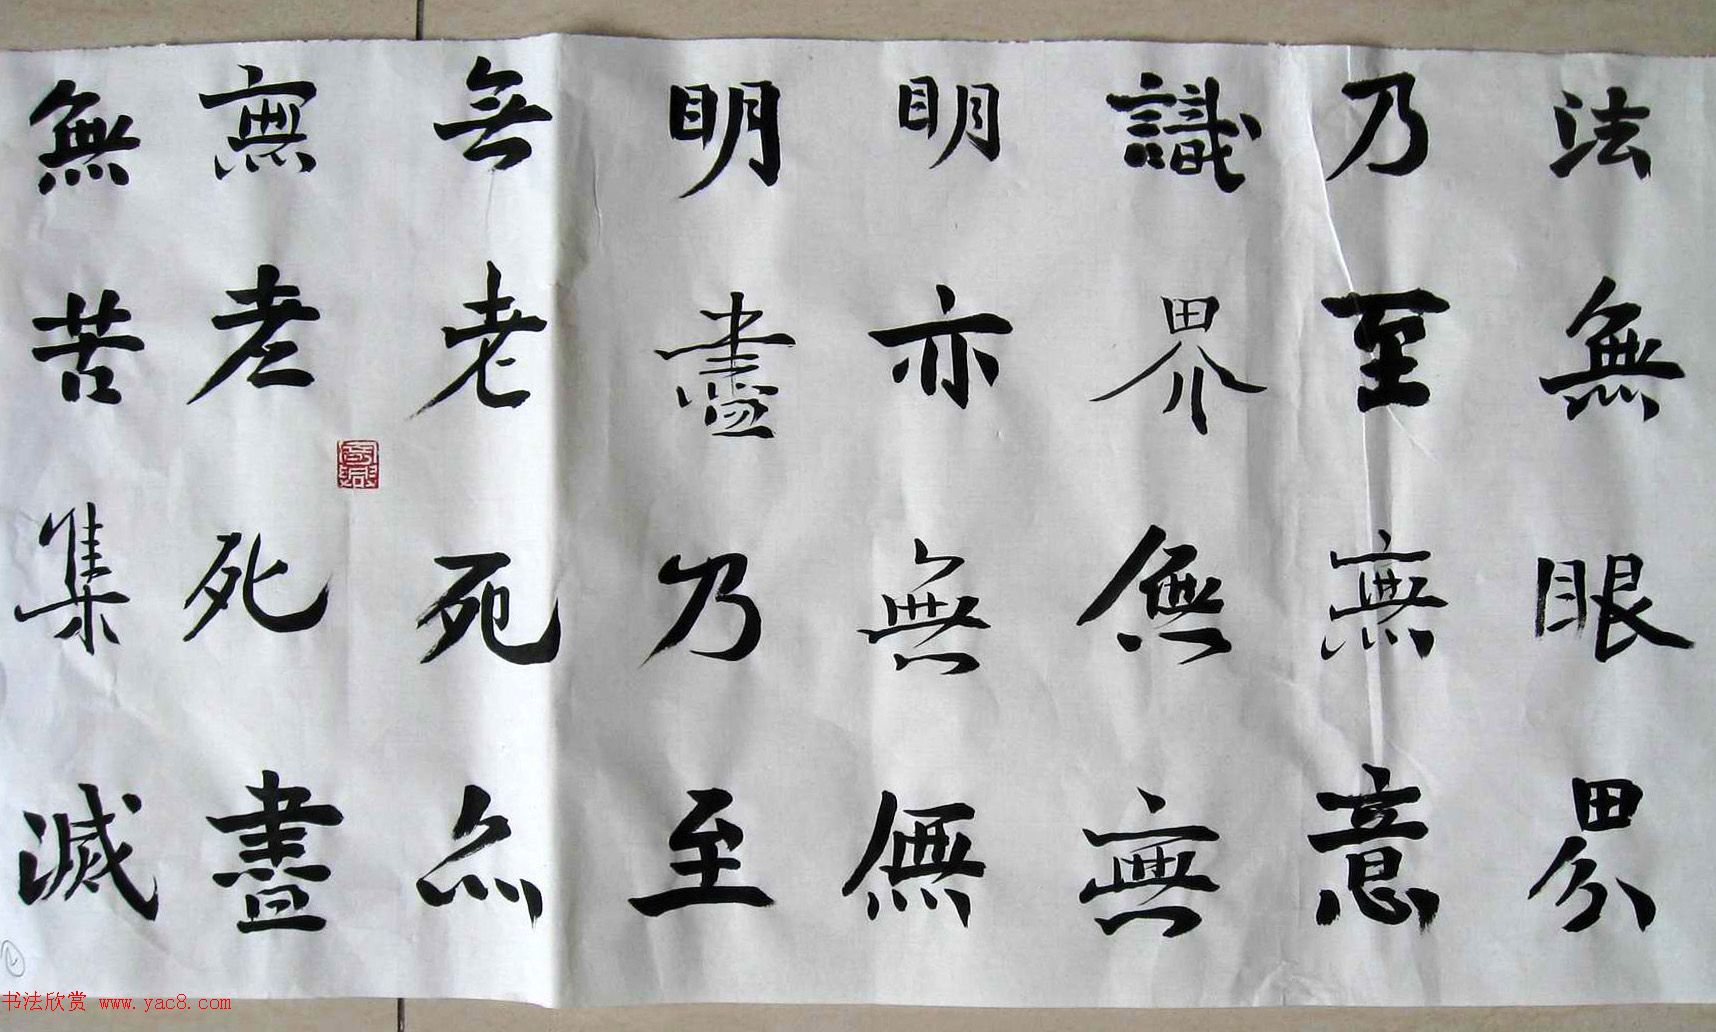 法無眼界
乃至無意
識界無無
明亦無無
明盡乃至
無老死亦
無老死盡
無苦集滅
书法欣赏 www.yac8.com